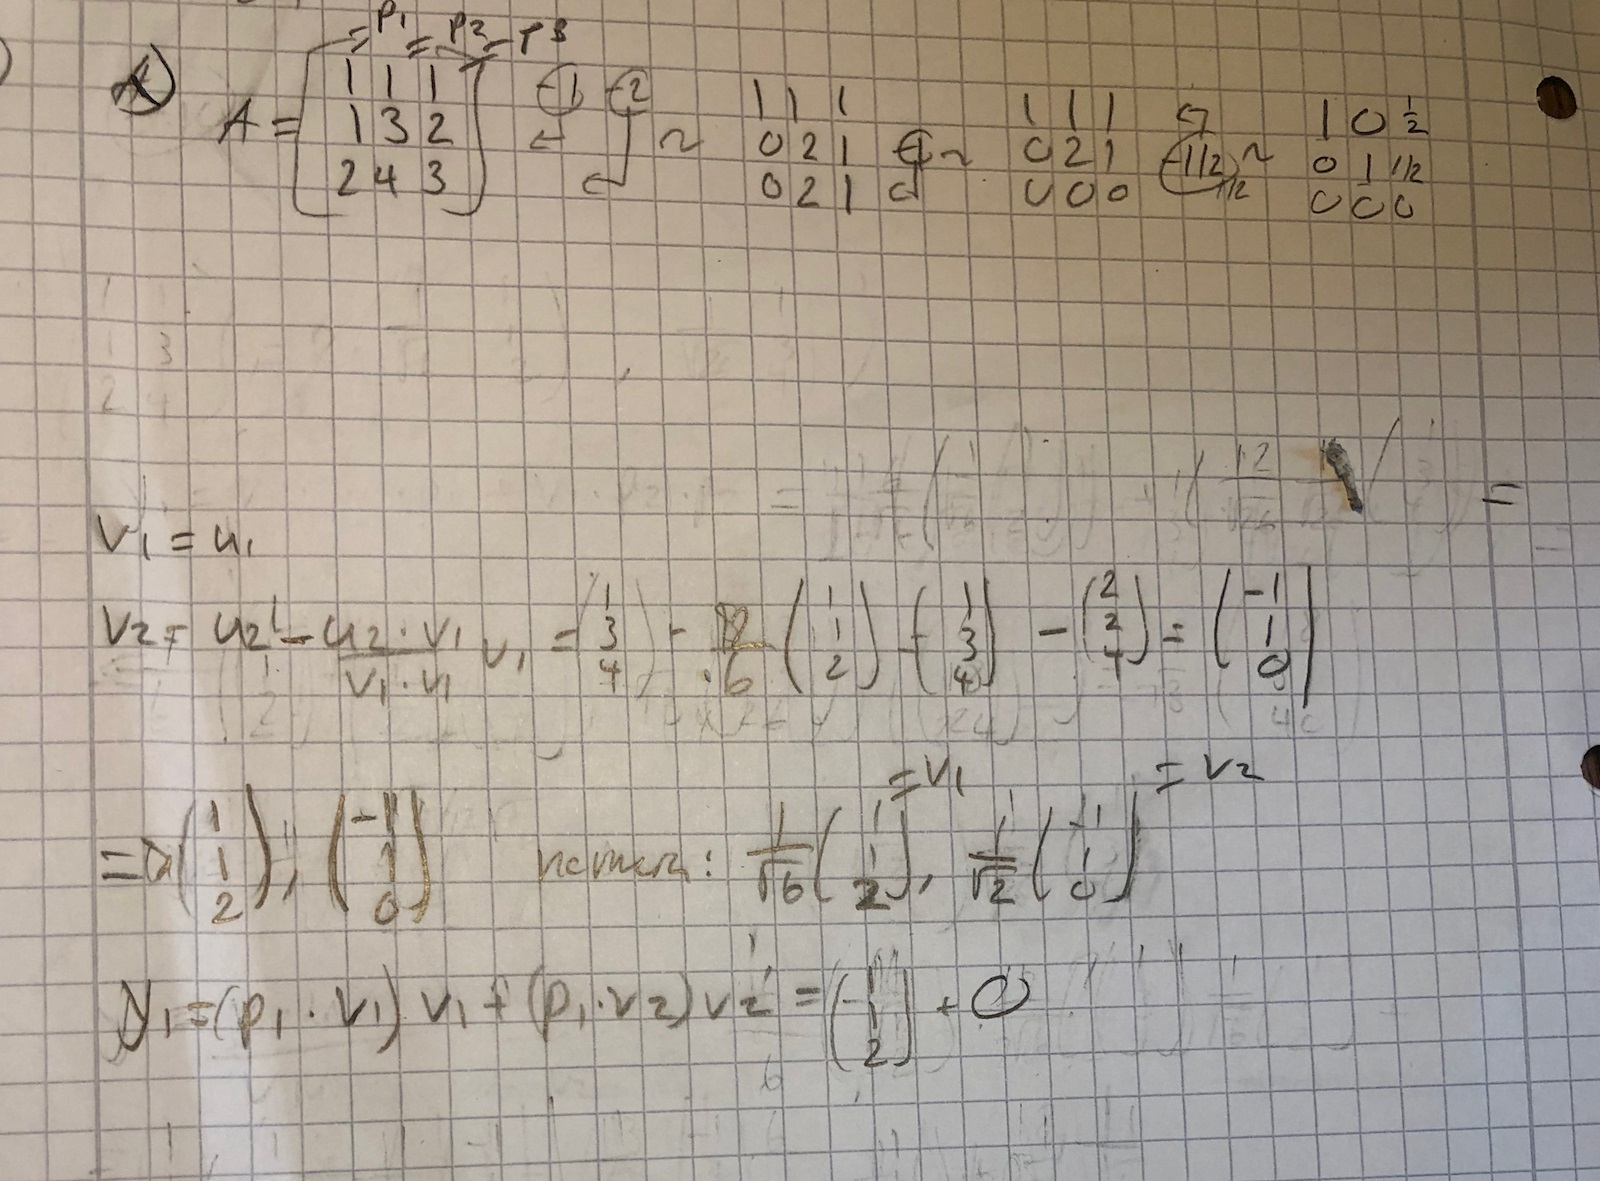 = p1 = p2 = p3
A = ( 1 1 1 ; 1 3 2 ; 2 4 3 ) (-1) (-2) ~ 1 1 1 ; 0 2 1 ; 0 2 1 (-1) ~ 1 1 1 ; 0 2 1 ; 0 0 0 (-1/2) 1/2 ~ 1 0 1/2 ; 0 1 1/2 ; 0 0 0
=
v1 = u1
v2 = u2 - u2·v1 / v1·v1 v1 = ( 1 3 4 ) - 12/6 ( 1 1 2 ) = ( 1 3 4 ) - ( 2 2 4 ) = ( -1 1 0 )
= v1 = v2
= ( 1 1 2 ), ( -1 1 0 ) : 1/√6 ( 1 1 2 ), 1/√2 ( -1 1 0 )
y1 = (p1 · v1) v1 + (p1 · v2) v2 = ( 1 1 2 ) + 0